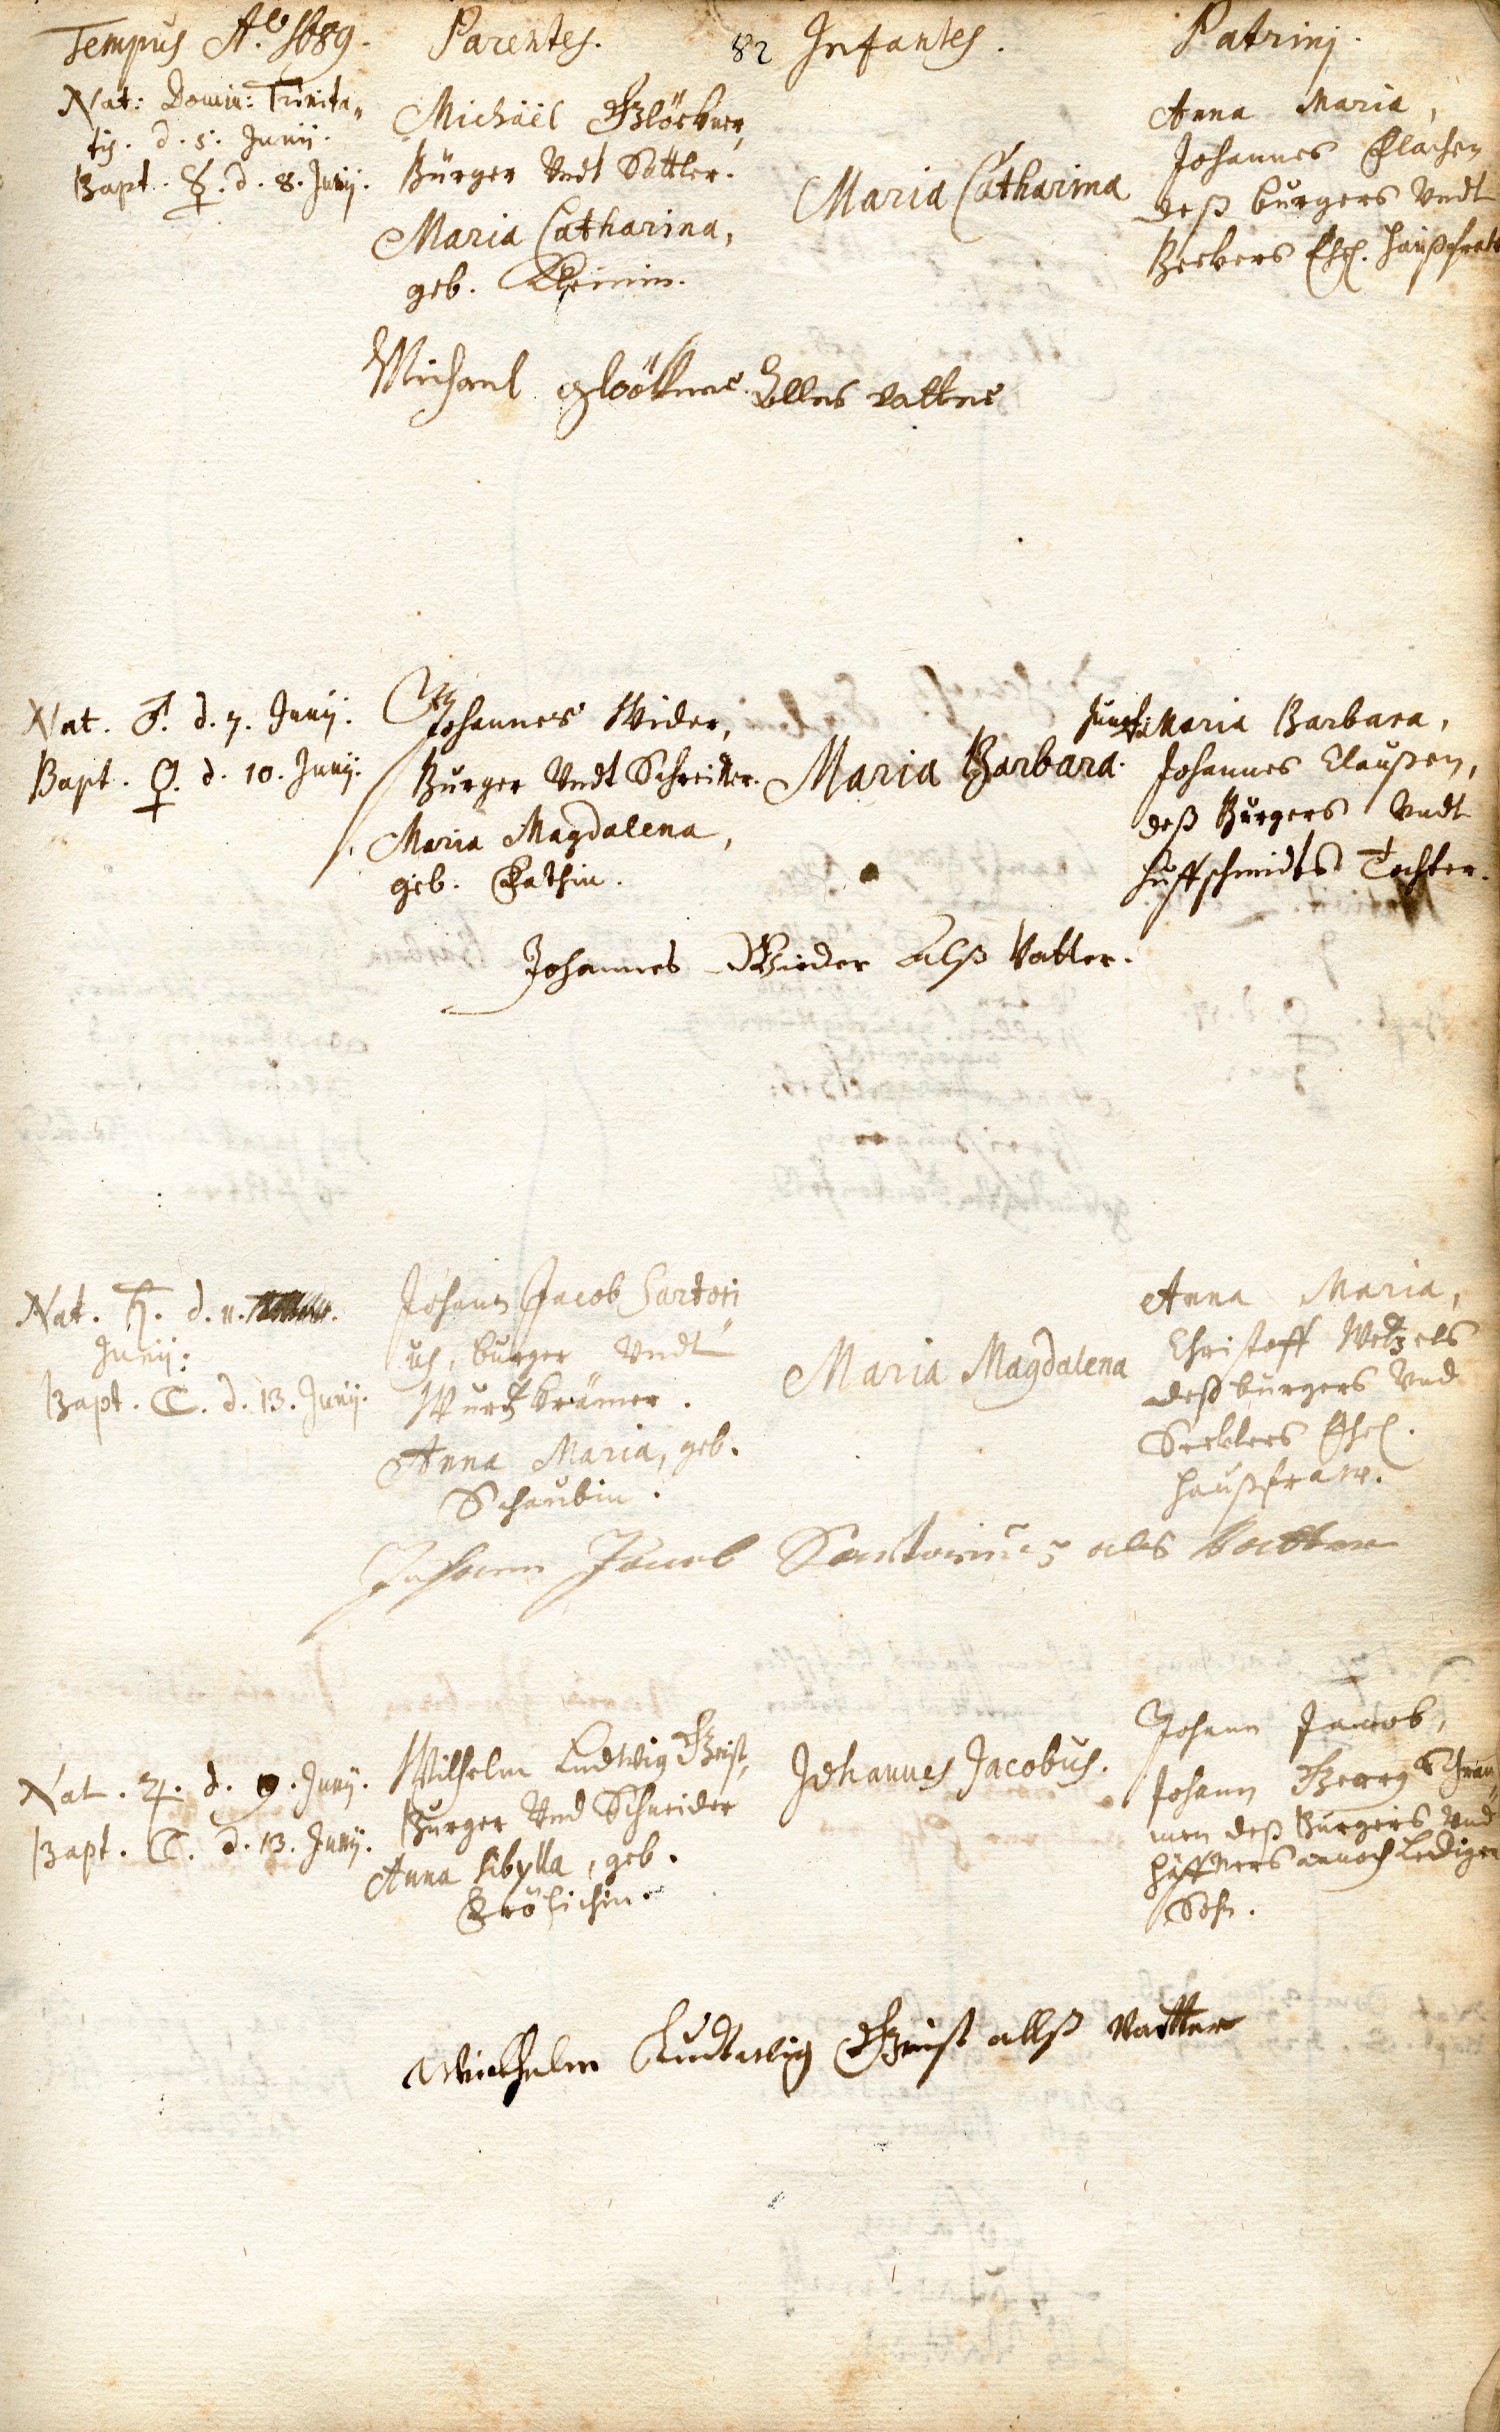 Tempus Aõ. 1689. Parentes. 82 Infantes. Patrinj.
Nat: Domin: Trinita„
tis. d. 5. Junij.
Bapt. ☿. d. 8. Junij.
Michaël Glöckner,
Bürger Undt Sattler.
Maria Catharina,
geb.
Maria Catharina
Anna Maria,
Johannes Flachen
deß burgers Undt
Beckers Ehel. Haußfraw
Michael glöckner Alls vatter
Nat. ♂. d. 7. Junij.
Bapt. ♀. d. 10. Junij.
Johannes Wider,
Burger Undt Schreiner.
Maria Magdalena,
geb. Fathin.
Maria Barbara.
Jungf: Maria Barbara,
Johannes Claußen,
deß Burgers Undt
Huffschmidts Tochter.
Johannes Wieder Alß Vatter.
Nat. ♄. d. 11.
Junij:
Bapt. ☾. d. 13. Junij.
Johann Jacob Sartori„
us, burger Undt
Wurtzkrämer.
Anna Maria, geb.
Schaubin.
Maria Magdalena
Anna Maria,
Christoff Wetzels
deß burgers Und
Secklers Ehel.
Haußfraw.
Johann Jacob Sartorius als Vatter
Nat. ♃. d. 9. Junij.
Bapt. ☾. d. 13. Junij.
Wilhelm Ludwig Geist,
Burger Und Schneider
Anna Sibylla, geb.
Frölichin.
Johannes Jacobus.
Johann Jacob,
Johann Georg Schram„
men deß Burgers Und
Häffners annoch Ledigen
Sohn.
Wielhelm Ludtwig Geist allß Vatter